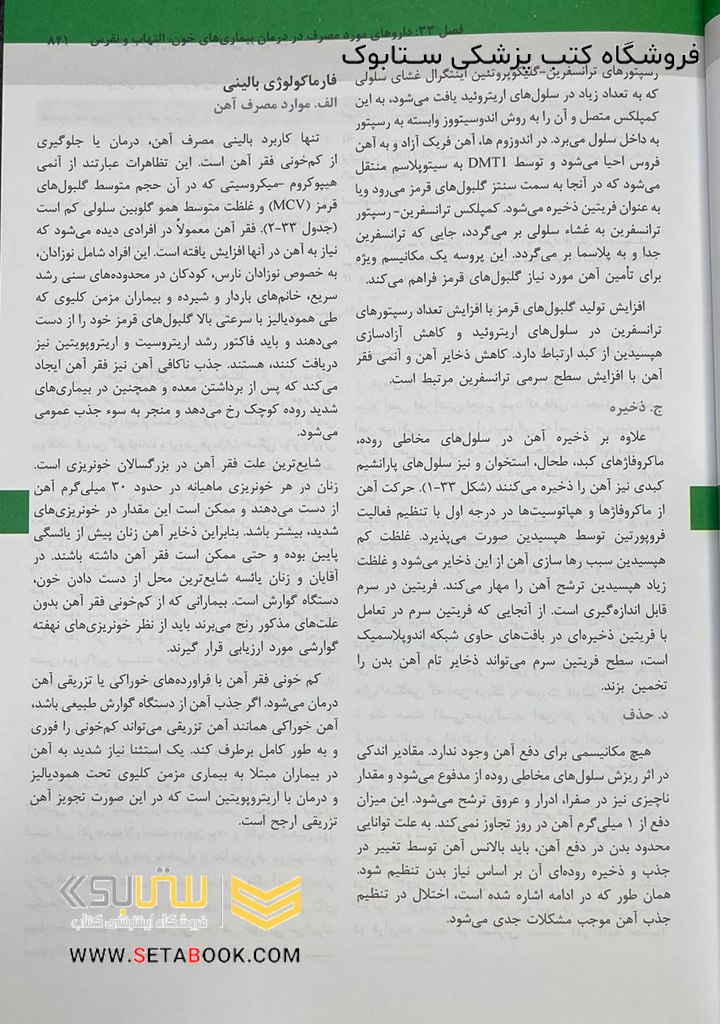 فصل ۳۳: داروهای مورد مصرف در درمان بیماری‌های خون، التهاب و نقرس ۸۴۱
فروشگاه کتب پزشکی ستابوک
رسپتورهای ترانسفرین-گلیکوپروتئین اینتگرال غشای سلولی
که به تعداد زیاد در سلول‌های اریتروئید یافت می‌شود، به این
کمپلکس متصل و آن را به روش اندوسیتووز وابسته به رسپتور
به داخل سلول می‌برد. در اندوزوم ها، آهن فریک آزاد و به آهن
فروس احیا می‌شود و توسط DMT1 به سیتوپلاسم منتقل
می‌شود که در آنجا به سمت سنتز گلبول‌های قرمز می‌رود ویا
به عنوان فریتین ذخیره می‌شود. کمپلکس ترانسفرین- رسپتور
ترانسفرین به غشاء سلولی بر می‌گردد، جایی که ترانسفرین
جدا و به پلاسما بر می‌گردد. این پروسه یک مکانیسم ویژه
برای تأمین آهن مورد نیاز گلبول‌های قرمز فراهم می‌کند.
افزایش تولید گلبول‌های قرمز با افزایش تعداد رسپتورهای
ترانسفرین در سلول‌های اریتروئید و کاهش آزادسازی
هپسیدین از کبد ارتباط دارد. کاهش ذخایر آهن و آنمی فقر
آهن با افزایش سطح سرمی ترانسفرین مرتبط است.
ج. ذخیره
علاوه بر ذخیره آهن در سلول‌های مخاطی روده،
ماکروفاژهای کبد، طحال، استخوان و نیز سلول‌های پارانشیم
کبدی نیز آهن را ذخیره می‌کنند (شکل ۳۳-۱). حرکت آهن
از ماکروفاژها و هپاتوسیت‌ها در درجه اول با تنظیم فعالیت
فروپورتین توسط هپسیدین صورت می‌پذیرد. غلظت کم
هپسیدین سبب رها سازی آهن از این ذخایر می‌شود و غلظت
زیاد هپسیدین ترشح آهن را مهار می‌کند. فریتین در سرم
قابل اندازه‌گیری است. از آنجایی که فریتین سرم در تعامل
با فریتین ذخیره‌ای در بافت‌های حاوی شبکه اندوپلاسمیک
است، سطح فریتین سرم می‌تواند ذخایر تام آهن بدن را
تخمین بزند.
د. حذف
هیچ مکانیسمی برای دفع آهن وجود ندارد. مقادیر اندکی
در اثر ریزش سلول‌های مخاطی روده از مدفوع می‌شود و مقدار
ناچیزی نیز در صفرا، ادرار و عروق ترشح می‌شود. این میزان
دفع از ۱ میلی‌گرم آهن در روز تجاوز نمی‌کند. به علت توانایی
محدود بدن در دفع آهن، باید بالانس آهن توسط تغییر در
جذب و ذخیره روده‌ای آن بر اساس نیاز بدن تنظیم شود.
همان طور که در ادامه اشاره شده است، اختلال در تنظیم
جذب آهن موجب مشکلات جدی می‌شود.
فارماکولوژی بالینی
الف. موارد مصرف آهن
تنها کاربرد بالینی مصرف آهن، درمان یا جلوگیری
از کم‌خونی فقر آهن است. این تظاهرات عبارتند از آنمی
هیپوکروم -میکروسیتی که در آن حجم متوسط گلبول‌های
قرمز (MCV) و غلظت متوسط همو گلوبین سلولی کم است
(جدول ۳۳-۲). فقر آهن معمولاً در افرادی دیده می‌شود که
نیاز به آهن در آنها افزایش یافته است. این افراد شامل نوزادان،
به خصوص نوزادان نارس، کودکان در محدوده‌های سنی رشد
سریع، خانم‌های باردار و شیرده و بیماران مزمن کلیوی که
طی همودیالیز با سرعتی بالا گلبول‌های قرمز خود را از دست
می‌دهند و باید فاکتور رشد اریتروسیت و اریتروپویتین نیز
دریافت کنند، هستند. جذب ناکافی آهن نیز فقر آهن ایجاد
می‌کند که پس از برداشتن معده و همچنین در بیماری‌های
شدید روده کوچک رخ می‌دهد و منجر به سوء جذب عمومی
می‌شود.
شایع‌ترین علت فقر آهن در بزرگسالان خونریزی است.
زنان در هر خونریزی ماهیانه در حدود ۳۰ میلی‌گرم آهن
از دست می‌دهند و ممکن است این مقدار در خونریزی‌های
شدید، بیشتر باشد. بنابراین ذخایر آهن زنان پیش از یائسگی
پایین بوده و حتی ممکن است فقر آهن داشته باشند. در
آقایان و زنان یائسه شایع‌ترین محل از دست دادن خون،
دستگاه گوارش است. بیمارانی که از کم‌خونی فقر آهن بدون
علت‌های مذکور رنج می‌برند باید از نظر خونریزی‌های نهفته
گوارشی مورد ارزیابی قرار گیرند.
کم خونی فقر آهن با فراورده‌های خوراکی یا تزریقی آهن
درمان می‌شود. اگر جذب آهن از دستگاه گوارش طبیعی باشد،
آهن خوراکی همانند آهن تزریقی می‌تواند کم‌خونی را فوری
و به طور کامل برطرف کند. یک استثنا نیاز شدید به آهن
در بیماران مبتلا به بیماری مزمن کلیوی تحت همودیالیز
و درمان با اریتروپویتین است که در این صورت تجویز آهن
تزریقی ارجح است.
ستابوک
فروشگاه اینترنتی کتاب
WWW.SETABOOK.COM